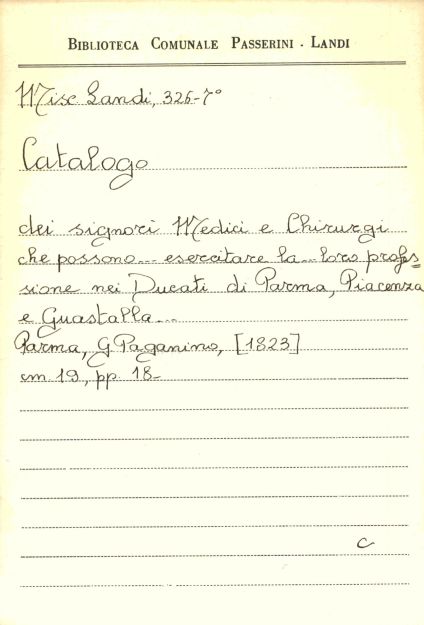 BIBLIOTECA COMUNALE PASSERINI - LANDI
Misc Landi, 326-7°
Catalogo
dei signori Medici e Chirurgi
che possono... esercitare la... loro profes=
sione nei Ducati di Parma, Piacenza
e Guastalla...
Parma, G. Paganino, [1823]
cm 19, pp. 18-
C